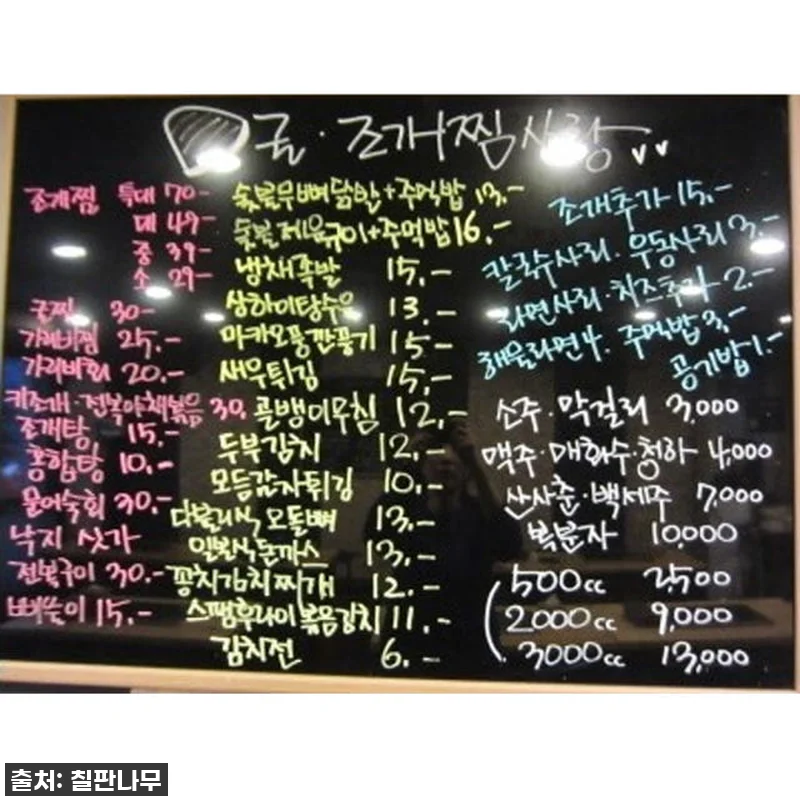 굴·조개찜사랑
조개찜 특대 70-
대 49-
중 39-
소 29-
굴찜 30-
가리비찜 25.-
가리비회 20.-
키조개·전복야채볶음 30.
조개탕 15.-
홍합탕 10.-
문어숙회 30.-
낙지 싯가
전복구이 30.-
15.-
숯불무뼈닭발+주먹밥 13.-
숯불제육구이+주먹밥 16.-
냉채족발 15.-
상하이탕수육 13.-
마카오풍깐풍기 15-
새우튀김 15.-
골뱅이무침 12.-
두부김치 12.-
모듬감자튀김 10.-
오돌뼈 13.-
일본식돈까스 13.-
꽁치김치찌개 12.-
스팸후라이볶음김치 11.-
김치전 6.-
조개추가 15.-
칼국수사리·우동사리 3.-
라면사리·치즈추가 2.-
해물라면 4. 주먹밥 3.-
공기밥 1.-
소주·막걸리 3,000
맥주·매화수·청하 4,000
산사춘·백세주 7,000
복분자 10,000
500cc 2,500
2.000cc 9,000
3000cc 13,000
출처: 칠판나무